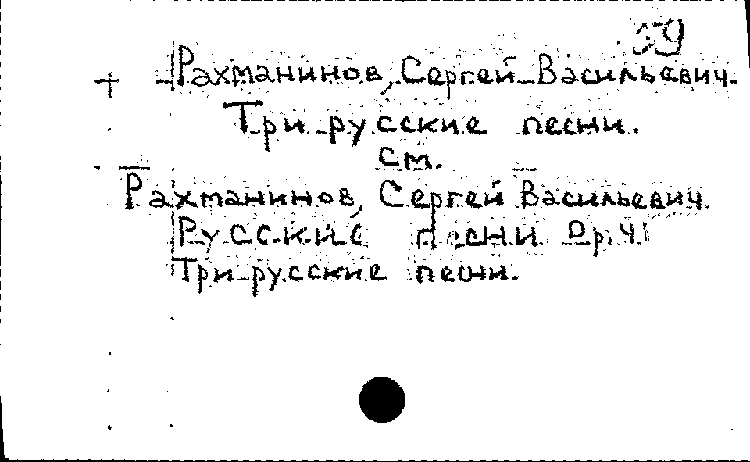 59
+ Рахманинов, Сергей Васильевич.
Три русские песни.
см.
Рахманинов, Сергей Васильевич.
Русские песни Op. 41
Три русские песни.